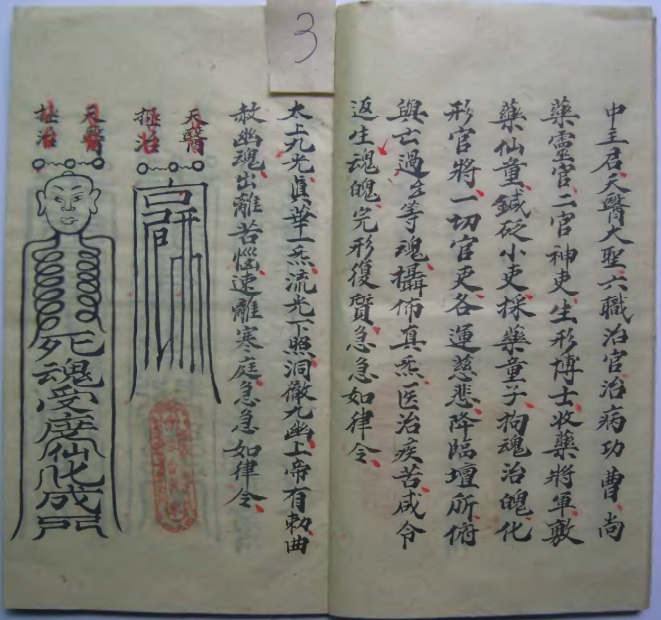 3
中主君天醫大聖六職治官治病功曹尚
藥靈官二官神吏生形博士收藥將軍敷
藥仙童鍼砭小吏採藥童子狗魂治魄化
形官將一切官吏各運慈悲降臨壇所俯
與亡過△等魂攝佈真炁医治疾苦咸令
返生魂魄完形復質急急如律令
太上九光真華一炁流光下照洞徹九幽上帝有勅曲
赦幽魂出離苦惱速離寒庭急急如律令
天醫
拯治
天醫
拯治
死魂受度仙化成門